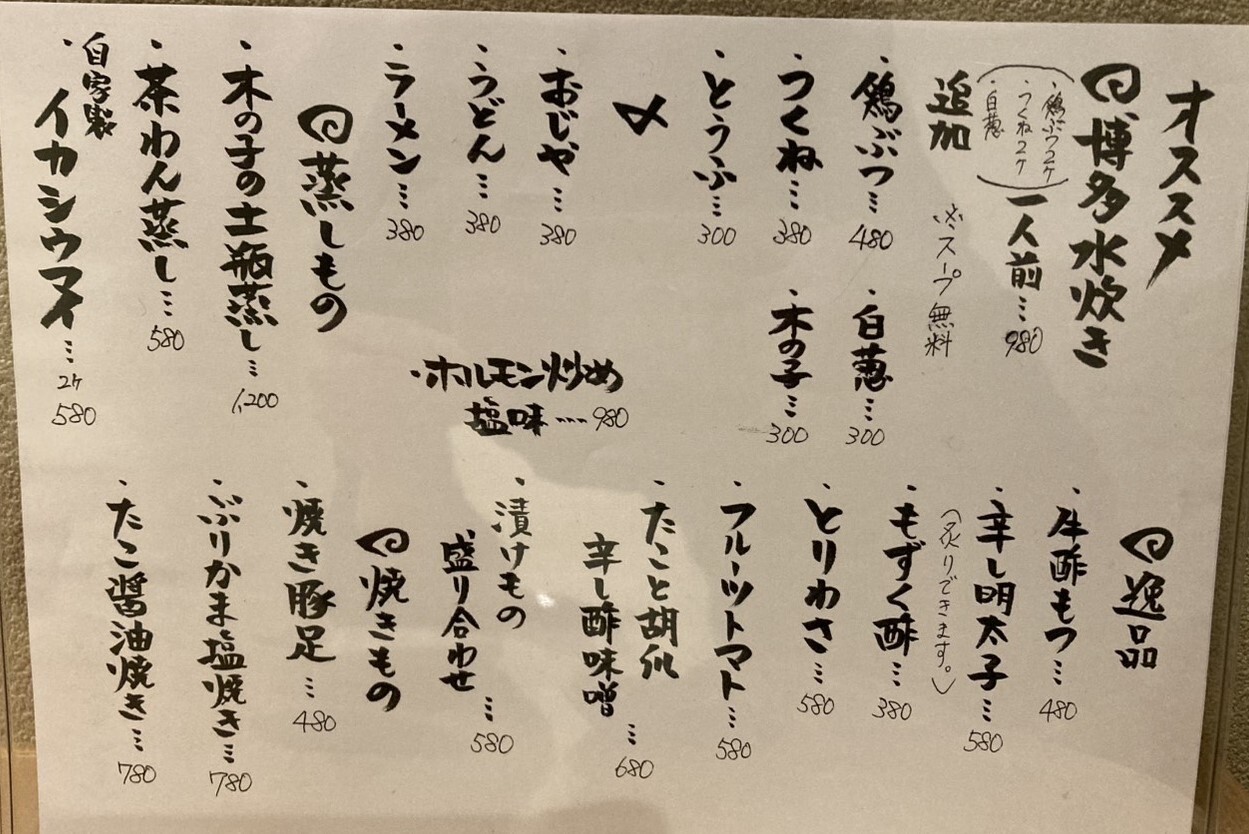 オススメ
博多水炊き
・鶏ぶつ2ケ
・つくね2ケ
・白葱
一人前…980
追加
※スープ無料
・鶏ぶつ…480
・白葱…300
・つくね…380
・木の子…300
・とうふ…300
〆
・おじや…380
・うどん…380
・ラーメン…380
・ホルモン炒め
塩味…980
蒸しもの
・木の子の土瓶蒸し…1,200
・茶わん蒸し…580
・自家製
イカシウマイ…2ケ
580
逸品
・牛酢もつ…480
・辛し明太子…580
(炙りできます。)
・もずく酢…380
・とりわさ…580
・フルーツトマト…580
・たこと胡瓜
辛し酢味噌…680
・漬けもの
盛り合わせ…580
焼きもの
・焼き豚足…480
・ぶりかま塩焼き…780
・たこ醤油焼き…780